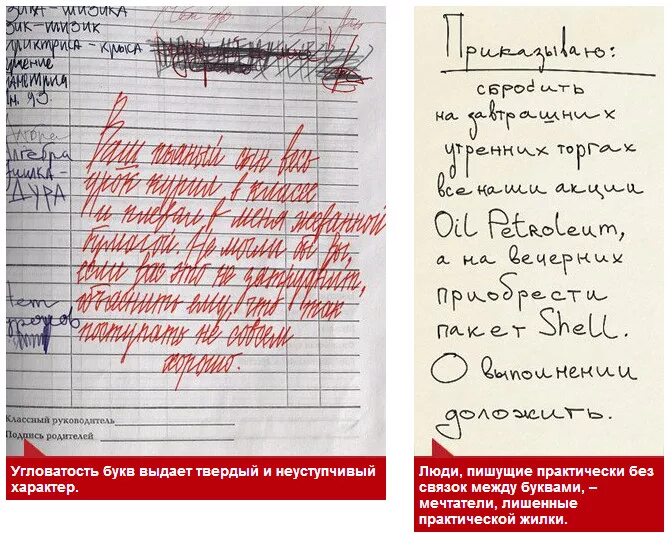 ЗИКА-ШИЗИКА
ЗИК-ШИЗИК
КРЫСА
93
ЛГЕБРА
ДУРА
Ваш пьяный сын весь
урок курил в классе
и плевал в меня жеванной
бумагой. Не могли бы вы,
если вас это не затруднит,
объяснить ему, что так
поступать не совсем
хорошо.
Классный руководитель
Подпись родителей
Угловатость букв выдает твердый и неуступчивый
характер.
Приказываю:
сбродить
на завтрашних
утренних торгах
все наши акции
Oil Petroleum,
а на вечерних
приобрести
пакет Shell.
О выполнении
доложить.
Люди, пишущие практически без
связок между буквами, –
мечтатели, лишенные
практической жилки.